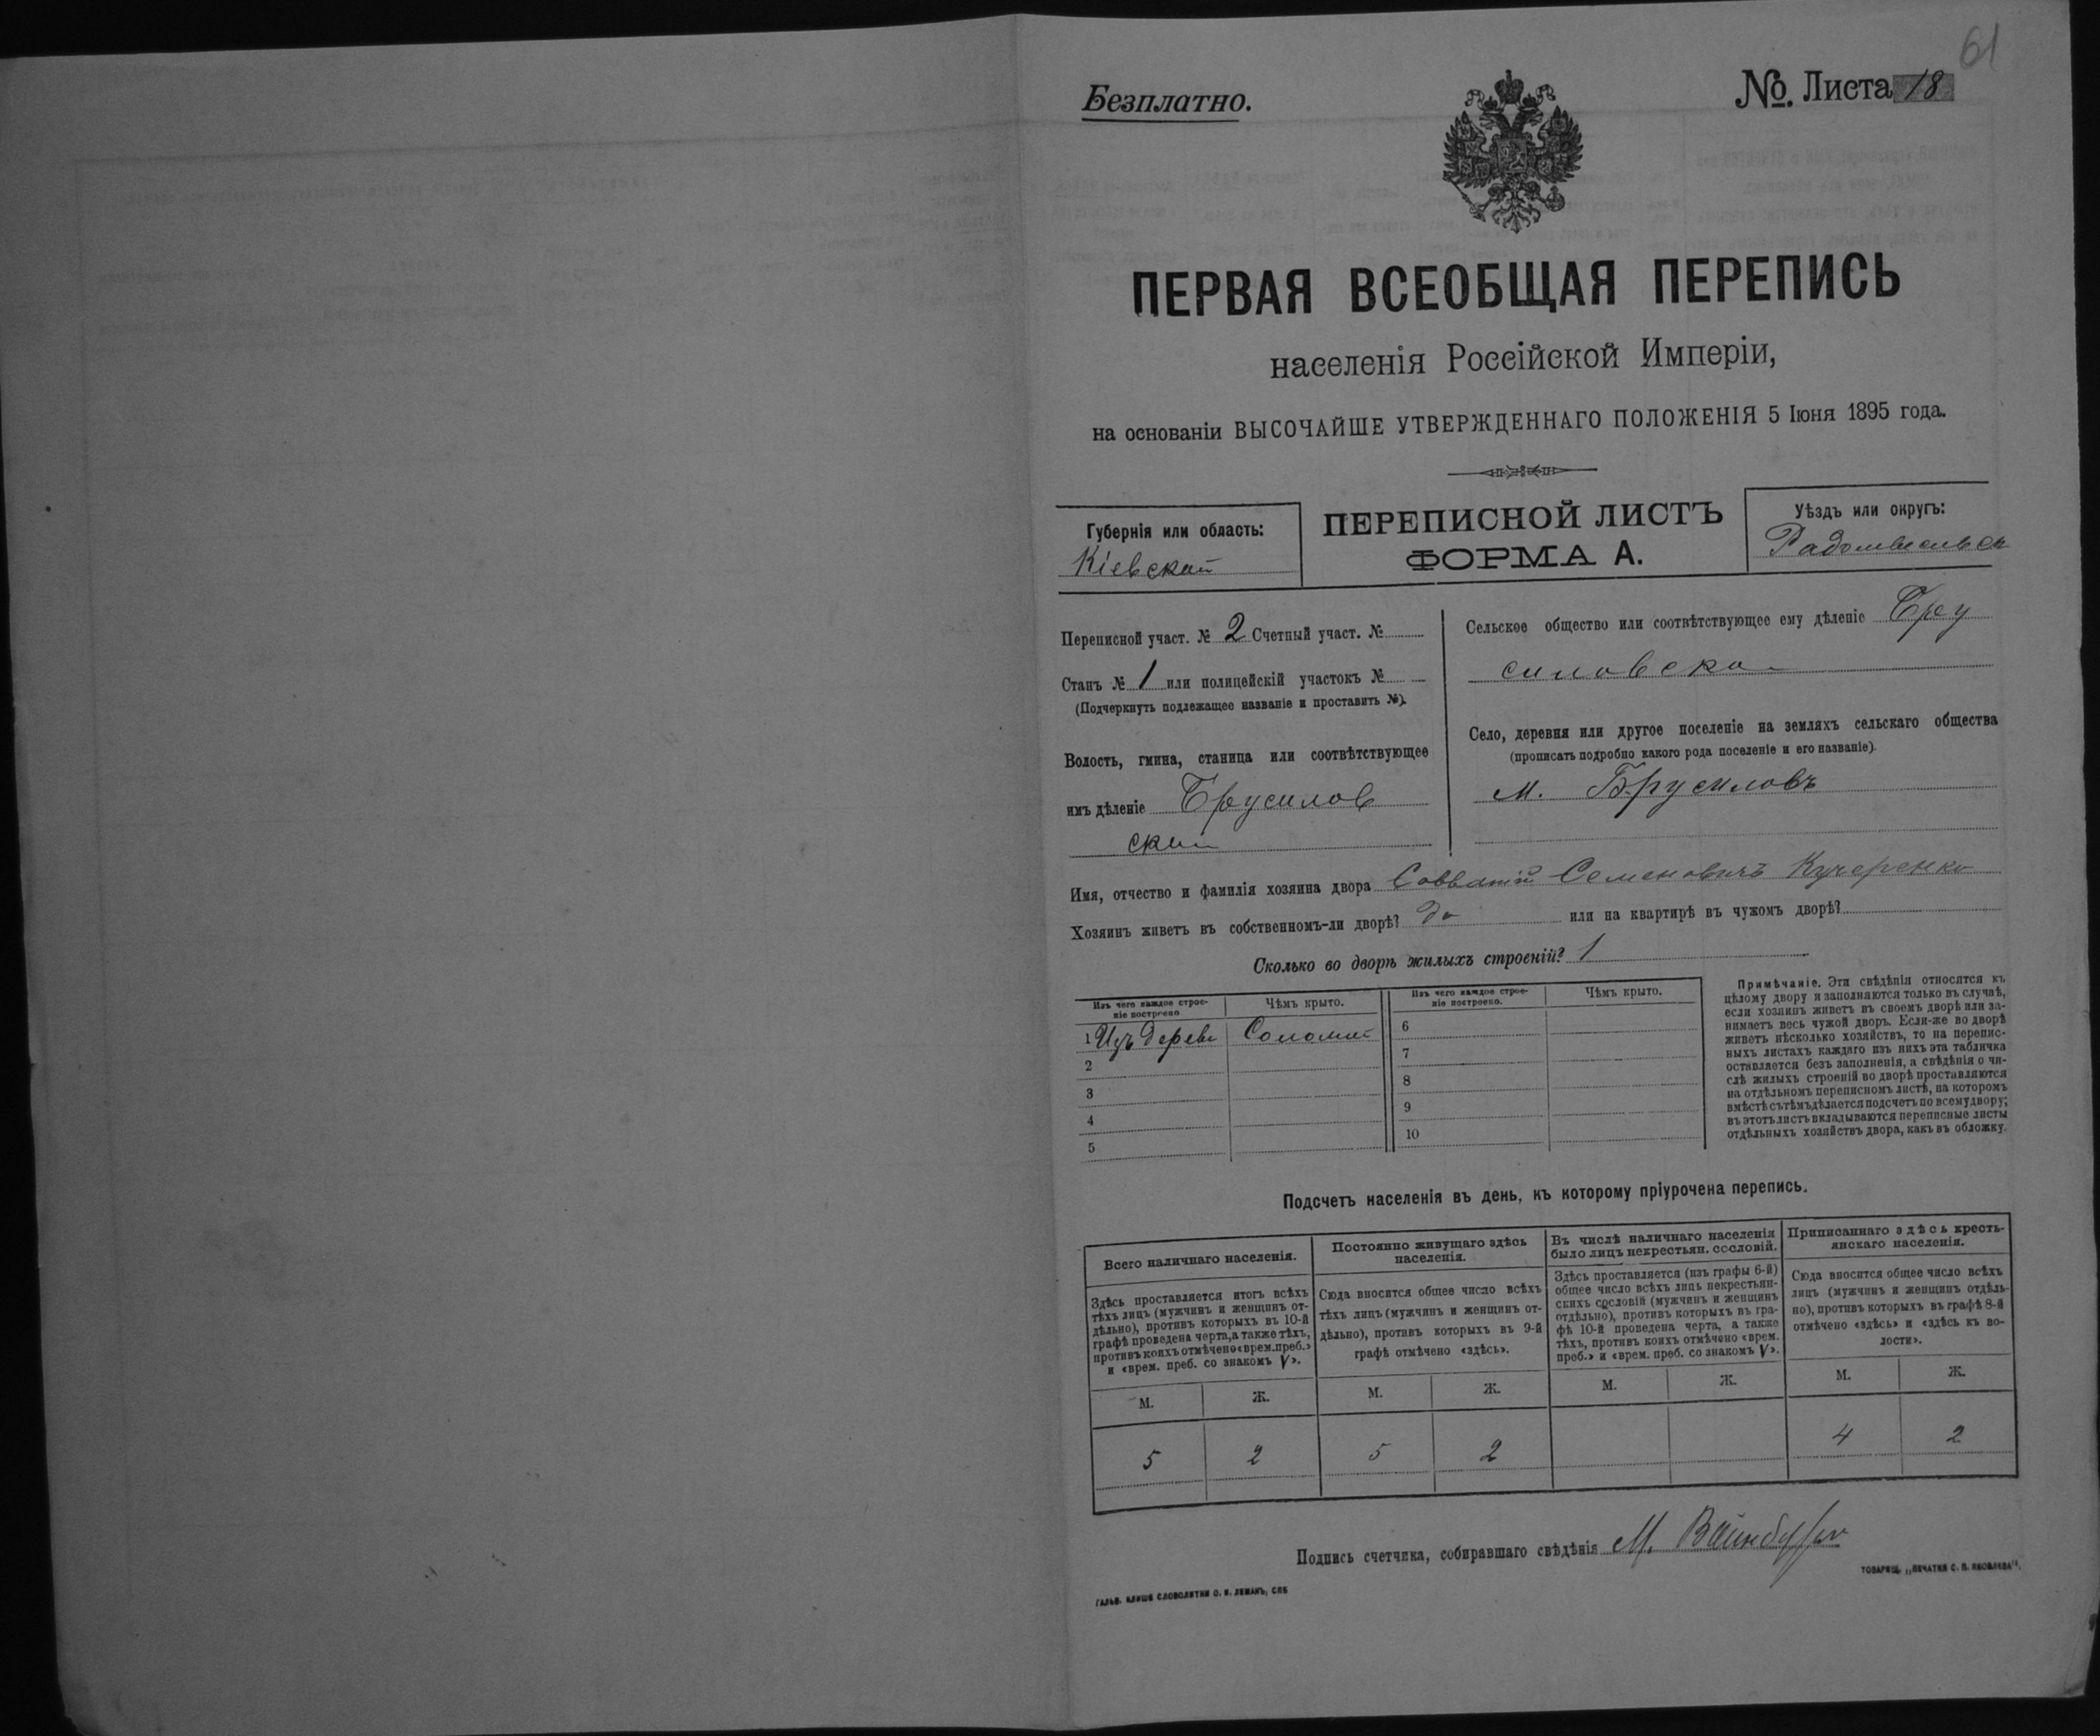 61
Безплатно.
№. Листа 18
ПЕРВАЯ ВСЕОБЩАЯ ПЕРЕПИСЬ
населенія Россійской Имперіи,
на основаніи ВЫСОЧАЙШЕ УТВЕРЖДЕННАГО ПОЛОЖЕНІЯ 5 Іюня 1895 года.
Губернія или область:
Кіевская
ПЕРЕПИСНОЙ ЛИСТЪ
ФОРМА А.
Уѣздъ или округъ:
Радомысльск
Переписной участ. № 2 Счетный участ. №
Станъ № 1 или полицейскій участокъ №
(Подчеркнуть подлежащее названіе и проставить №).
Волость, гмина, станица или соотвѣтствующее
имъ дѣленіе Брусилов
ский
Сельское общество или соотвѣтствующее ему дѣленіе Бру
силовско
Село, деревня или другое поселеніе на земляхъ сельскаго общества
(прописать подробно какого рода поселеніе и его названіе).
м. Брусиловъ
Имя, отчество и фамилія хозяина двора Савватий Семеновичъ Кучеренко
Хозяинъ живетъ въ собственномъ-ли дворѣ? да или на квартирѣ въ чужомъ дворѣ?
Сколько во дворѣ жилыхъ строеній? 1
Изъ чего каждое строе-
ніе построено
Чѣмъ крыто.
1 Изъ дерева Соломой
2
3
4
5
Изъ чего каждое строе-
ніе построено.
Чѣмъ крыто.
6
7
8
9
10
Примѣчаніе. Эти свѣдѣнія относятся къ
цѣлому двору и заполняются только въ случаѣ,
если хозяинъ живетъ въ своемъ дворѣ или за-
нимаетъ весь чужой дворъ. Если-же во дворѣ
живетъ нѣсколько хозяйствъ, то на перепис-
ныхъ листахъ каждаго изъ нихъ эта табличка
оставляется безъ заполненія, а свѣдѣнія о чи-
слѣ жилыхъ строеній во дворѣ проставляются
на отдѣльномъ переписномъ листѣ, на которомъ
вмѣстѣ съ тѣмъ дѣлается подсчетъ по всему двору;
въ этотъ листъ вкладываются переписные листы
отдѣльныхъ хозяйствъ двора, какъ въ обложку.
Подсчетъ населенія въ день, къ которому пріурочена перепись.
Всего наличнаго населенія.
Здѣсь проставляется итогъ всѣхъ
тѣхъ лицъ (мужчинъ и женщинъ от-
дѣльно), противъ которыхъ въ 10-й
графѣ проведена черта, а также тѣхъ,
противъ коихъ отмѣчено «врем. преб.»
и «врем. преб. со знакомъ V».
М. Ж.
5 2
Постоянно живущаго здѣсь
населенія.
Сюда вносится общее число всѣхъ
тѣхъ лицъ (мужчинъ и женщинъ от-
дѣльно), противъ которыхъ въ 9-й
графѣ отмѣчено «здѣсь».
М. Ж.
5 2
Въ числѣ наличнаго населенія
было лицъ некрестьян. сословій.
Здѣсь проставляется (изъ графы 6-й)
общее число всѣхъ лицъ некрестьян-
скихъ сословій (мужчинъ и женщинъ
отдѣльно), противъ которыхъ въ гра-
фѣ 10-й проведена черта, а также
тѣхъ, противъ коихъ отмѣчено «врем.
преб.» и «врем. преб. со знакомъ V».
М. Ж.
Приписаннаго здѣсь кресть-
янскаго населенія.
Сюда вносится общее число всѣхъ
лицъ (мужчинъ и женщинъ отдѣль-
но), противъ которыхъ въ графѣ 8-й
отмѣчено «здѣсь» и «здѣсь къ во-
лости».
М. Ж.
4 2
Подпись счетчика, собиравшаго свѣдѣнія М.
ГАЛЬВ. КЛИШЕ СЛОВОЛИТНИ О. И. ЛЕМАНЪ, СПБ
ТОВАРИЩ. „ПЕЧАТНЯ С. П. ЯКОВЛЕВА".